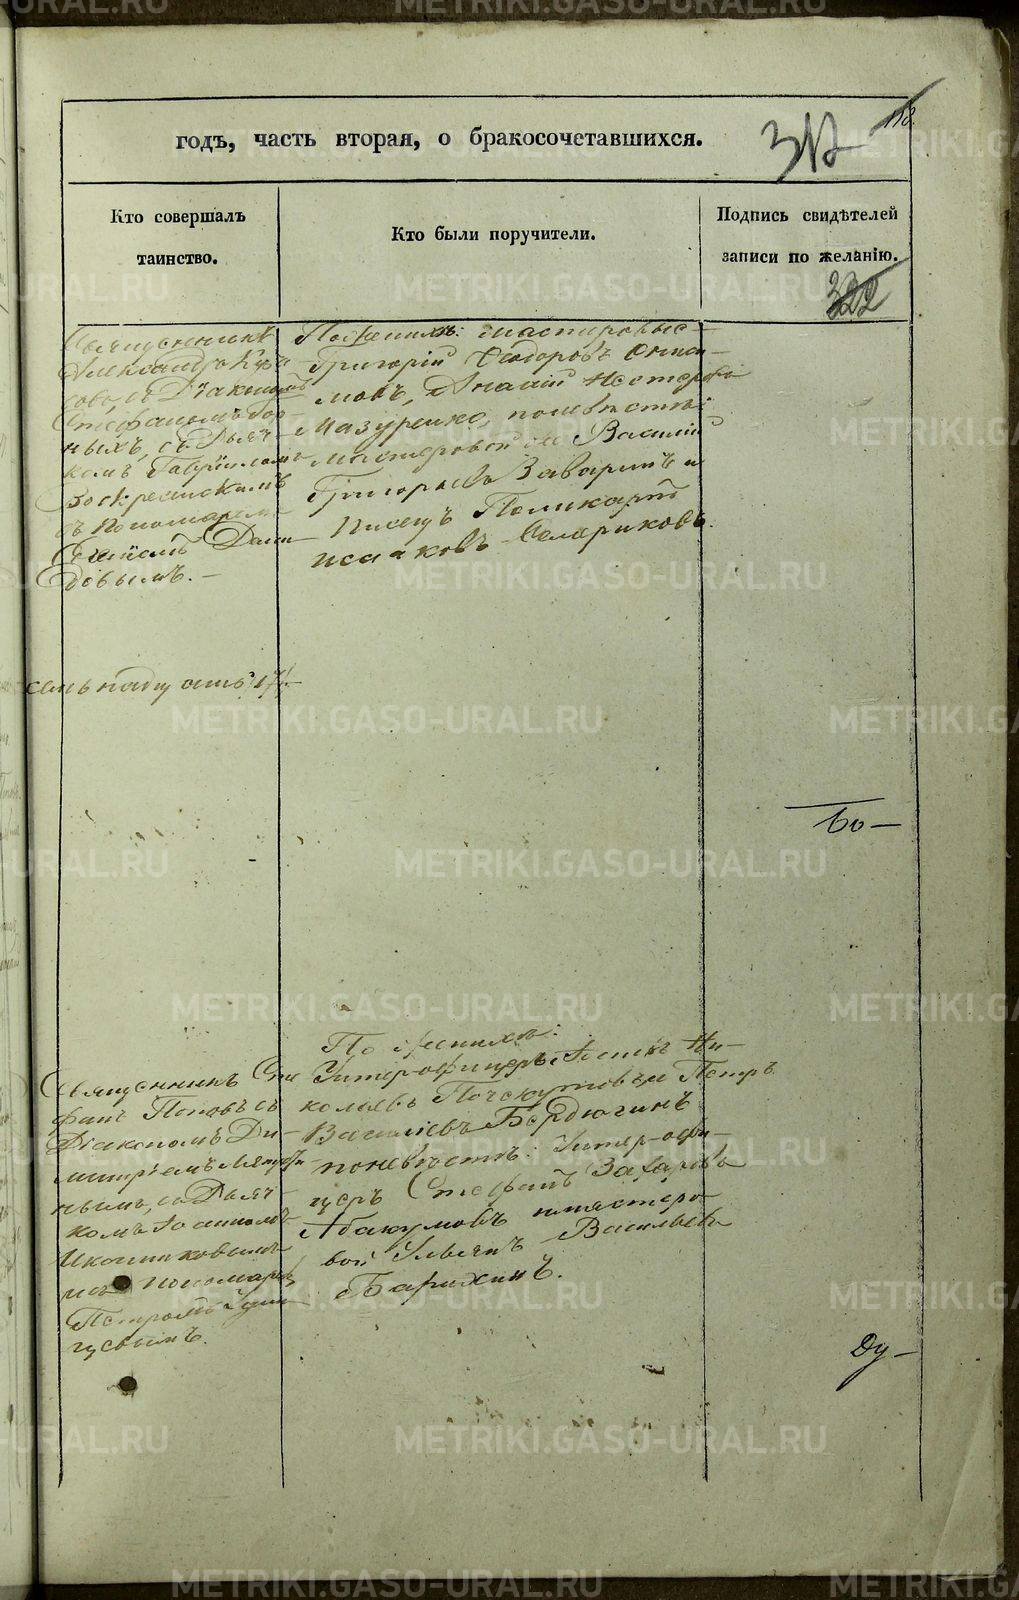 118.
годъ, часть вторая, о бракосочетавшихся.
312
Кто совершалъ
таинство.
Кто были поручители.
Подпись свидѣтелей
записи по желанію.
322
Священникъ
Александръ
съ Діакономъ
Стефаномъ
ныхъ, съ Дьяч-
комъ Гавріиломъ
Воскресенскимъ
съ Пономаремъ
Деми-
довымъ.—
По женихѣ: мастеровые
Григорій Ѳедоровъ
мовъ, Ананій Нестеровъ
Мазуренко, по невѣстѣ:
мастеровой Василій
Григорьевъ Заваринъ и
Писецъ Поликарпъ
Исааковъ
семьнадцать 17.—
Во—
Священникъ Сте
фанъ Поповъ съ
Діакономъ Ди-
митріемъ
нымъ, съ Дьяч-
комъ Іоанномъ
Иконниковымъ
и Пономаремъ
Петромъ
По женихѣ:
Унтеръ-офицеръ Ни-
колаевъ и Петръ
Василіевъ Бердюгинъ
по невѣстѣ: Унтер-офи-
церъ Стефанъ Захаровъ
Абакумовъ и мастеро-
вой Ульянъ Васильевъ
Барихинъ.
Ду—
METRIKI.GASO-URAL.RU